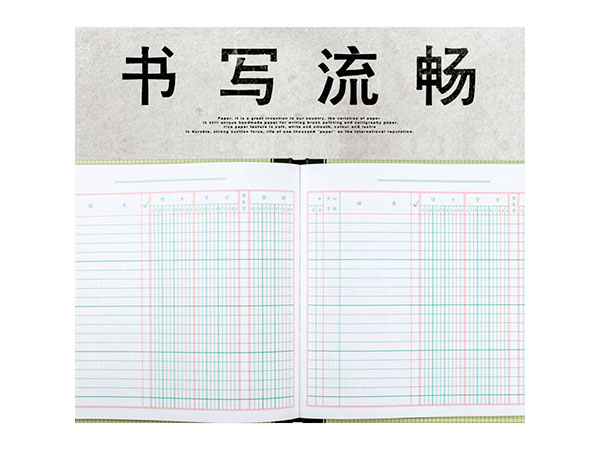 书写流畅
Paper, it is a great invention in our country, the varieties of paper
is still unique handmade paper for writing brush painting and calligraphy paper,
rice paper texture is soft, white and smooth, colour and lustre
is durable, strong suction force, life of one thousand "paper" on the international reputation.
摘 要 √ 借 方 贷 方 余 额
摘 要 √ 借 方 贷 方